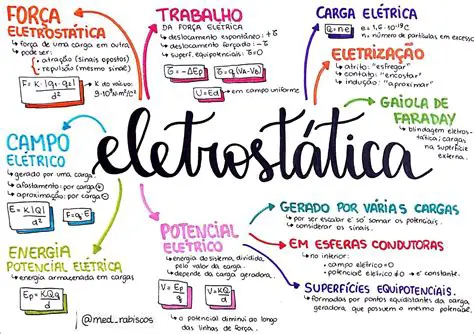 FORÇA
ELETROSTÁTICA
↳ força de uma carga em outra,
↳ pode ser:
• atração (sinais opostos)
• repulsão (mesmo sinal)
F = K·|q₁·q₂|
d²
K do vácuo:
9·10⁹ N·m²/C²
TRABALHO
DA FORÇA ELÉTRICA
↳ deslocamento espontâneo: +τ
↳ deslocamento forçado: -τ
↳ superf. equipotenciais: 0
τ = -ΔEp
τ = q(VA-VB)
U = Ed
↳ em campo uniforme
CARGA ELÉTRICA
Q = n·e
e = 1,6·10⁻¹⁹ C
n = número de partículas em excesso
ELETRIZAÇÃO
↳ atrito: "esfregar"
↳ contato: "encostar"
↳ indução: "aproximar"
GAIOLA DE
FARADAY
↳ blindagem eletros-
tática; cargas
na superfície
externa.
eletrostática
CAMPO
ELÉTRICO
↳ gerado por uma carga.
↳ afastamento: por carga +
↳ aproximação: por carga -
E = K|Q|
d²
F = q·E
ENERGIA
POTENCIAL ELÉTRICA
↳ energia armazenada em cargas
Ep = KQq
d
POTENCIAL
ELÉTRICO
↳ energia do sistema, dividida,
pelo valor da carga.
↳ depende da carga geradora.
V = Ep
q
V = KQ
d
↳ o potencial diminui ao longo
das linhas de força.
GERADO POR VÁRIAS CARGAS
↳ por ser escalar é só somar os potenciais.
↳ considerar os sinais.
EM ESFERAS CONDUTORAS
↳ no interior:
• campo elétrico = 0
• potencial elétrico ≠ 0 → é constante.
SUPERFÍCIES EQUIPOTENCIAIS
↳ formadas por pontos equidistantes da carga
geradora, que possuem o mesmo potencial
@med_rabiscos